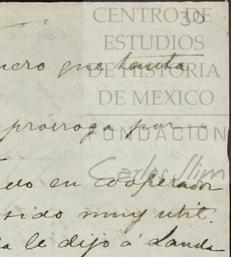 30
CENTRO DE
ESTUDIOS
DE HISTORIA
DE MEXICO
FUNDACIÓN
Carlos Slim
que tanta
prórroga por
do en cooperador
sido muy util.
le dijo á Landa